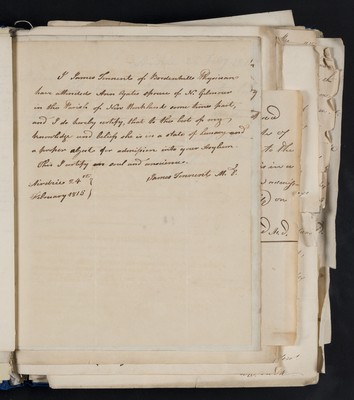 I James Tennent of Bordenhalls Physician
have attended Ann Pyles spouse of N. Gilmour
in the Parish of New Monkland some time past,
and I do hereby certify, that to the best of my
knowledge and belief she is in a state of lunacy and
a proper object for admission into your Asylum.
This I certify on soul and conscience.
Airdrie 24th
February 1818
James Tennent M.D.